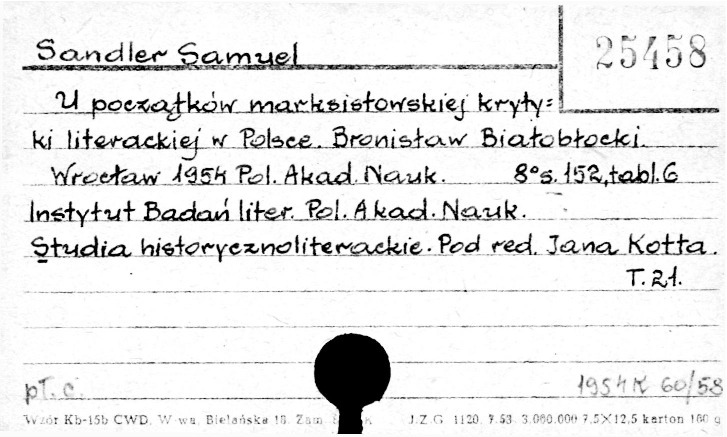 Sandler Samuel
25458
U początków marksistowskiej kryty=
ki literackiej w Polsce. Bronisław Białobłocki.
Wrocław 1954 Pol. Akad. Nauk. 8°s. 152, tabl. 6
Instytut Badań liter. Pol. Akad. Nauk.
Studia historycznoliterackie. Pod red. Jana Kotta.
T. 21.
pł. c. 1954 K 60/58
Wzór Kb-15b CWD, W-wa, Bielańska 18. Zam. J.Z.G. 1120. 7.53. 3.000.000 7,5×12,5 karton 160 g